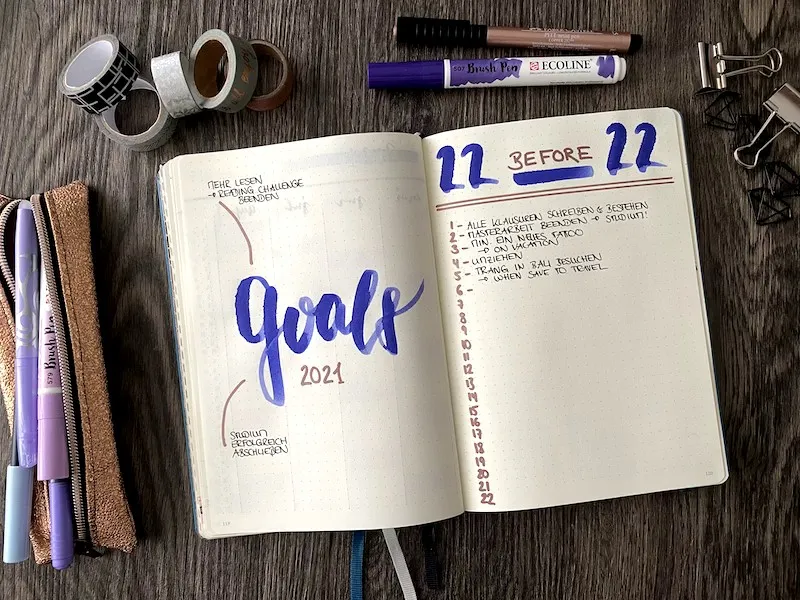 MEHR LESEN
→ READING CHALLENGE
BEENDEN
goals
2021
STUDIUM
ERFOLGREICH
ABSCHLIEẞEN
22 BEFORE 22
1 - ALLE KLAUSUREN SCHREIBEN & BESTEHEN
2 - MASTERARBEIT BEENDEN → STUDIUM!
3 - MIN. EIN NEUES TATOO
→ ON VACATION
4 - UMZIEHEN
5 - TRANG IN BALI BESUCHEN
→ WHEN SAVE TO TRAVEL
6 -
7
8
9
10
11
12
13
14
15
16
17
18
19
20
21
22
507 Brush Pen ECOLINE
579 Brush Pen